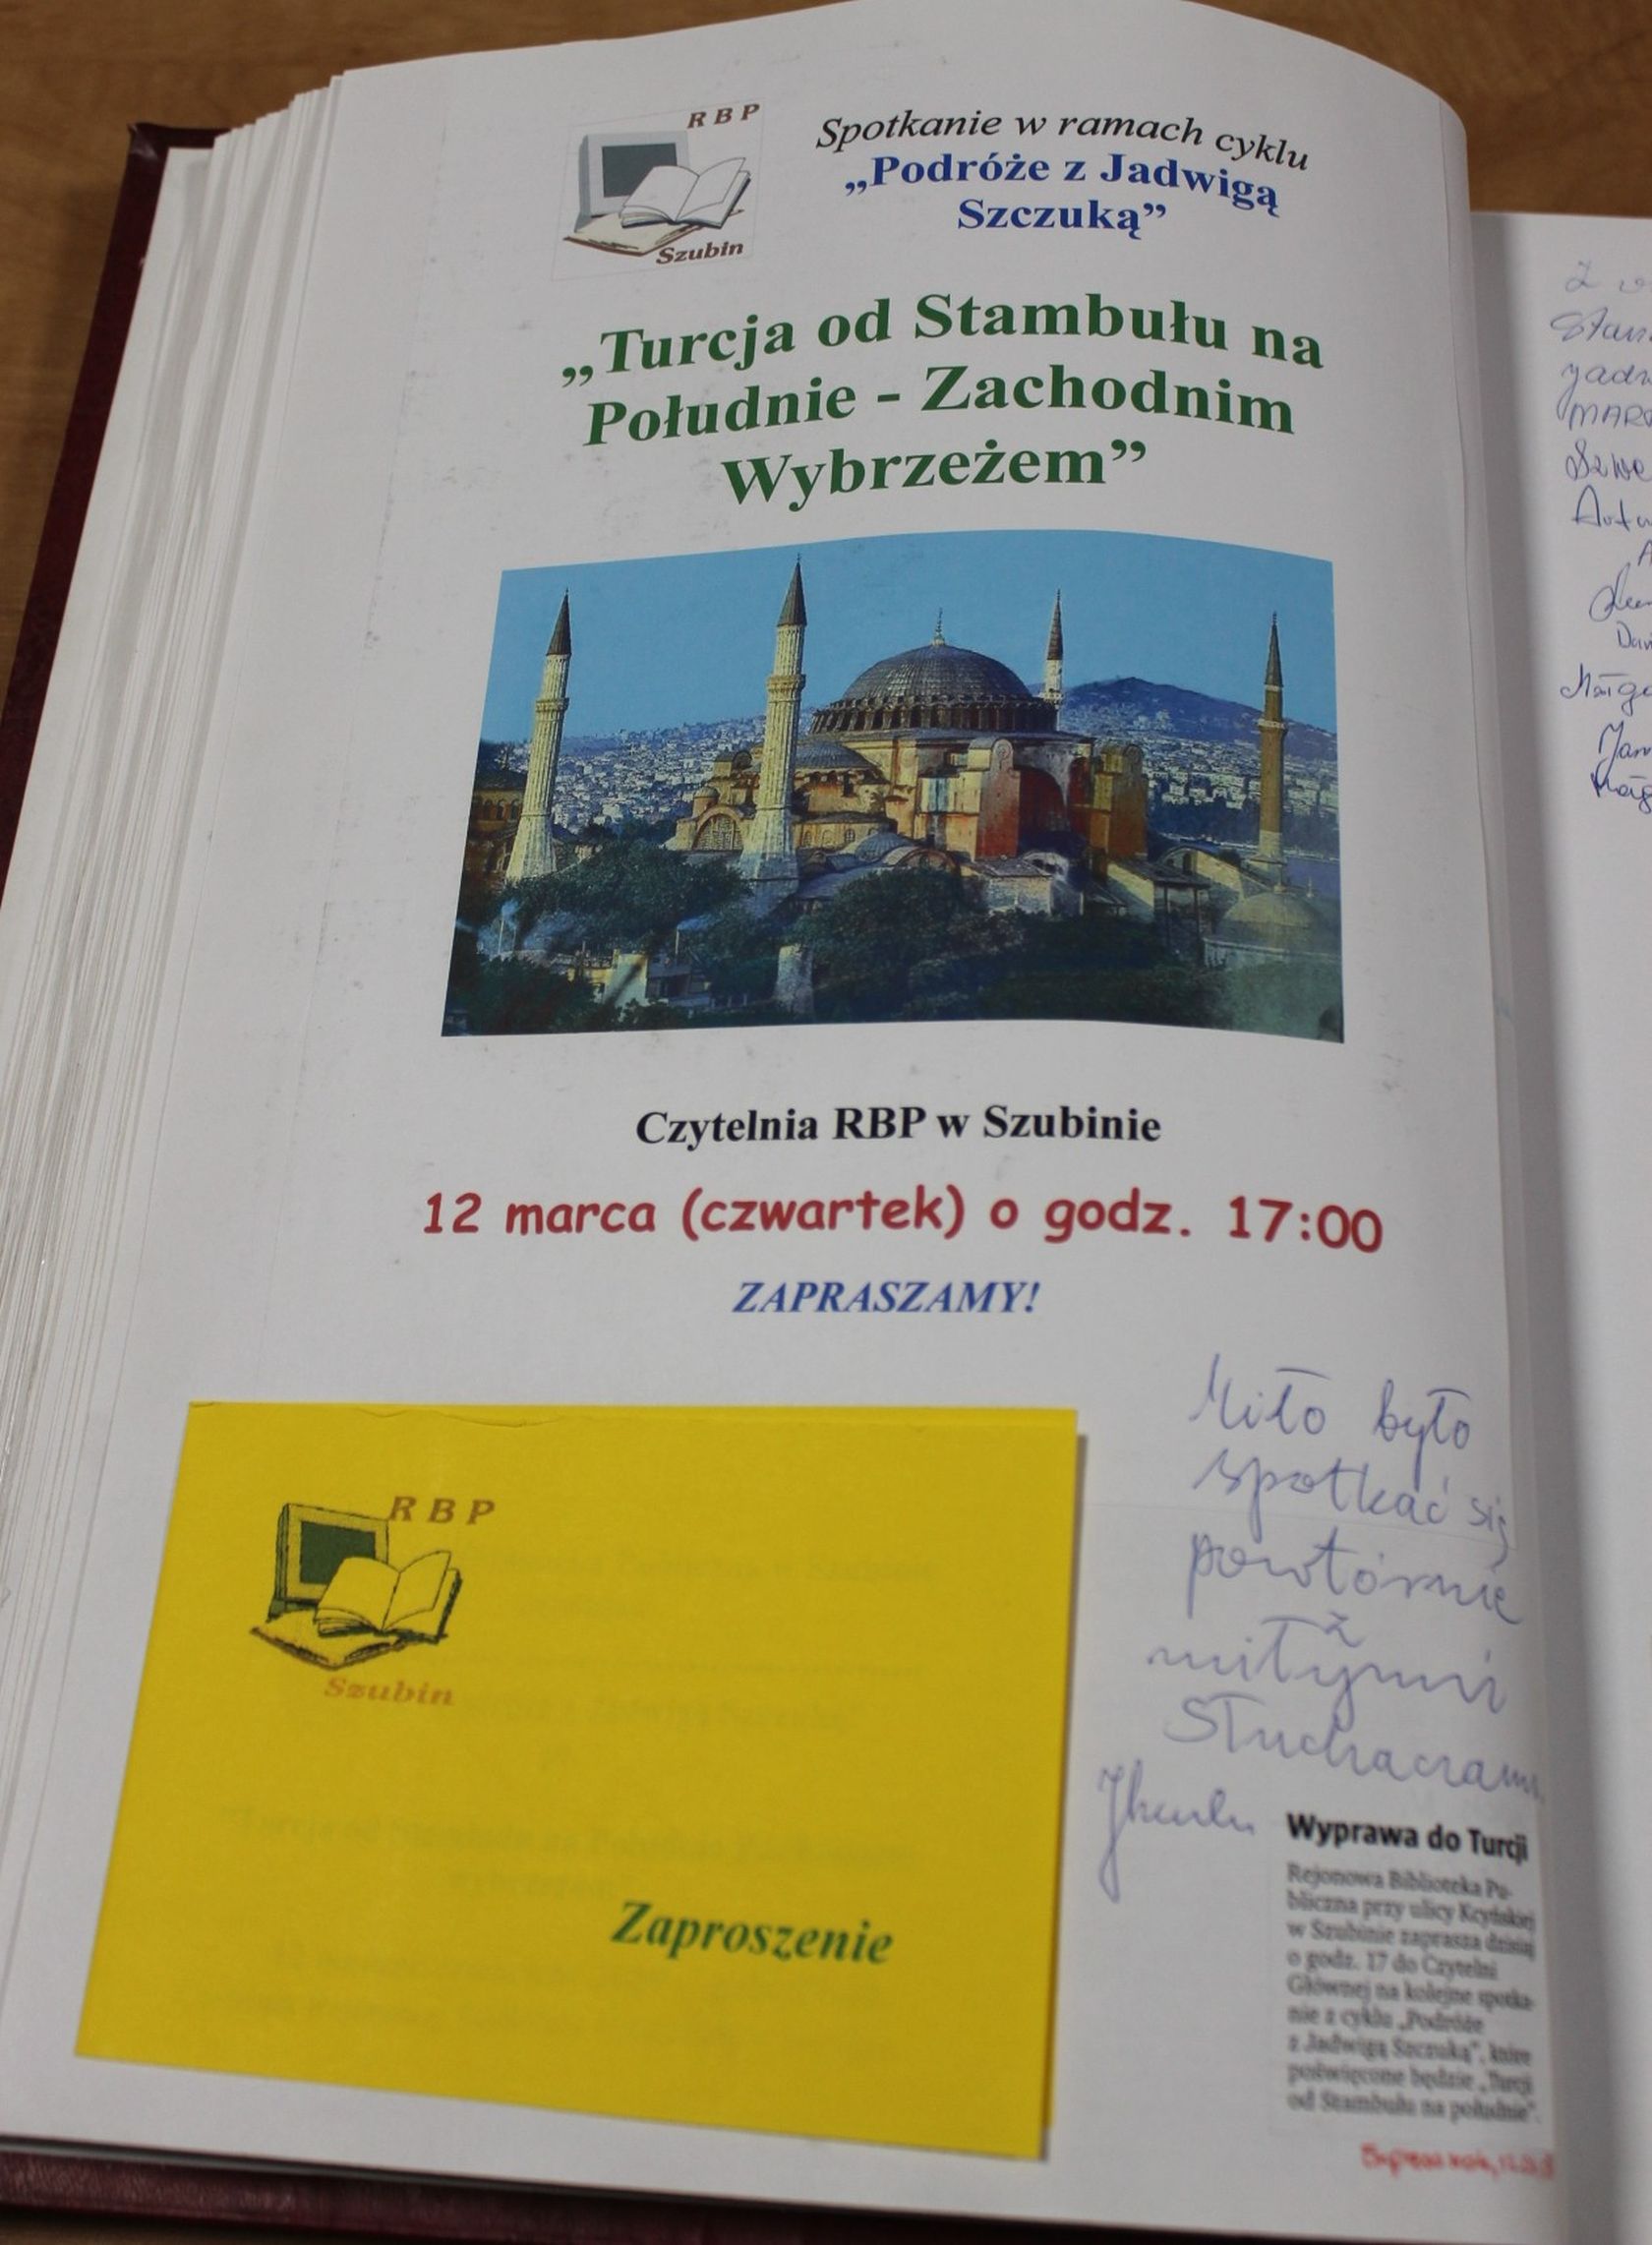 RBP
Szubin
Spotkanie w ramach cyklu
„Podróże z Jadwigą
Szczuką”
„Turcja od Stambułu na
Południe - Zachodnim
Wybrzeżem”
Czytelnia RBP w Szubinie
12 marca (czwartek) o godz. 17:00
ZAPRASZAMY!
RBP
Szubin
Zaproszenie
Miło było
spotkać się
powtórnie
z
miłymi
Słuchaczami
Wyprawa do Turcji
Rejonowa Biblioteka Pu-
bliczna przy ulicy Kcyńskiej
w Szubinie zaprasza dzisiaj
o godz. 17 do Czytelni
Głównej na kolejne spotka-
nie z cyklu „Podróże
z Jadwigą Szczuką”, które
poświęcone będzie „Turcji
od Stambułu na południe”.